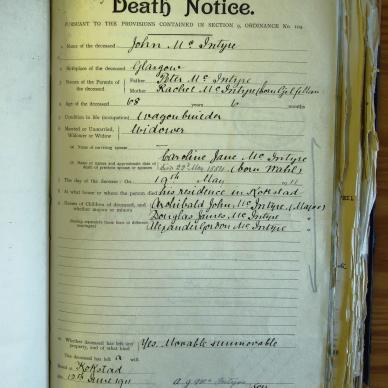 Death Notice.
PURSUANT TO THE PROVISIONS CONTAINED IN SECTION 9, ORDINANCE No. 104.
1 Name of the deceased John Mc Intyre
2 Birthplace of the deceased Glasgow
3 Names of the Parents of the deceased
Father Peter Mc Intyre
Mother Rachel Mc Intyre (born Gilfillan
4 Age of the deceased 68 years months
5 Condition in life (occupation) Wagonbuilder
6 Married or Unmarried, Widower or Widow Widower
(a) Name of surviving spouse
(b) Name or names and approximate date of death of previous spouse or spouses
Caroline Jane Mc Intyre
(born Wahl)
7 The day of the decease: On 19th May 1911
8 At what house or where the person died his residence in Kokstad
9 Names of Children of deceased, and whether majors or minors
Archibald John Mc Intyre (Major)
Douglas James Mc Intyre "
Alexander Gordon Mc Intyre "
10 Whether deceased has left any property, and of what kind Yes. Movable & immovable
The deceased has left a will
Dated at Kokstad
12th June 1911
A. J. Mc Intyre
Son